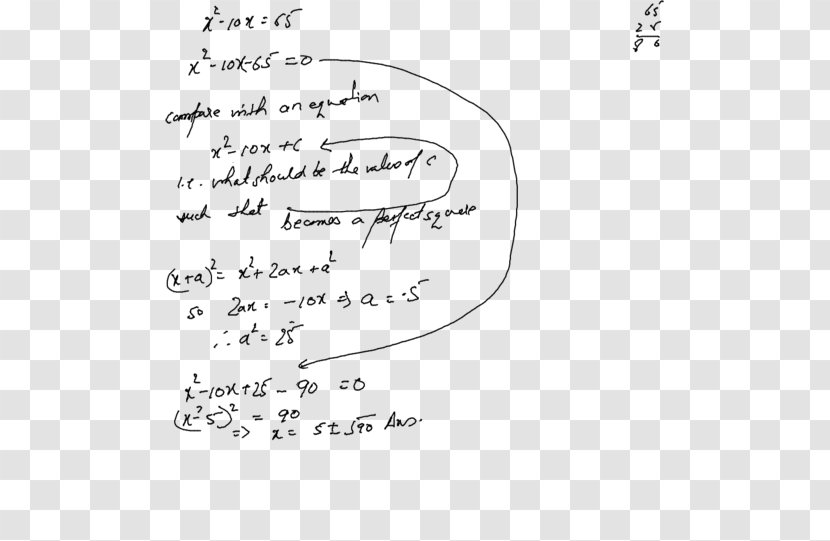 x² - 10x = 65
x² - 10x - 65 = 0
compare with an equation
x² - 10x + c
i.e. what should be the value of c
such that becomes a perfect square
(x+a)² = x² + 2ax + a²
so 2ax = -10x ⇒ a = -5
∴ a² = 25
x² - 10x + 25 - 90 = 0
(x - 5)² = 90
⇒ x = 5 ± √90 Ans.
65
25